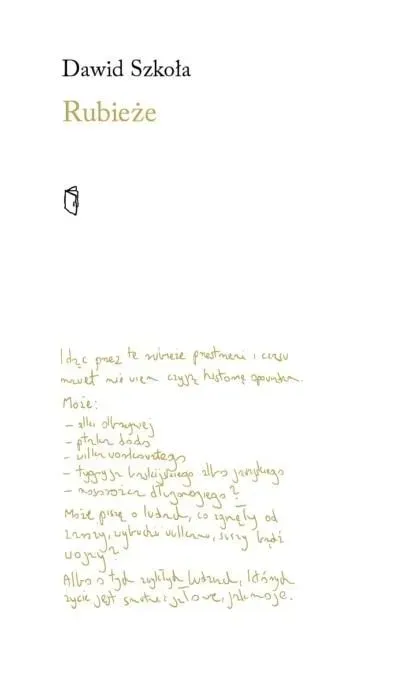 Dawid Szkoła
Rubieże
Idąc przez te rubieże przestrzeni i czasu
nawet nie wiem czyją historię opowiadam.
Może:
- alki olbrzymiej
- ptaka dodo
- wilka workowatego
- tygrysa kaspijskiego albo jawajskiego
- nosorożca długorogiego?
Może piszę o ludziach, co zginęły od
zarazy, wybuchu wulkanu, suszy bądź
wojny?
Albo o tych zwykłych ludziach, których
życie jest smutne i jałowe, jak moje.